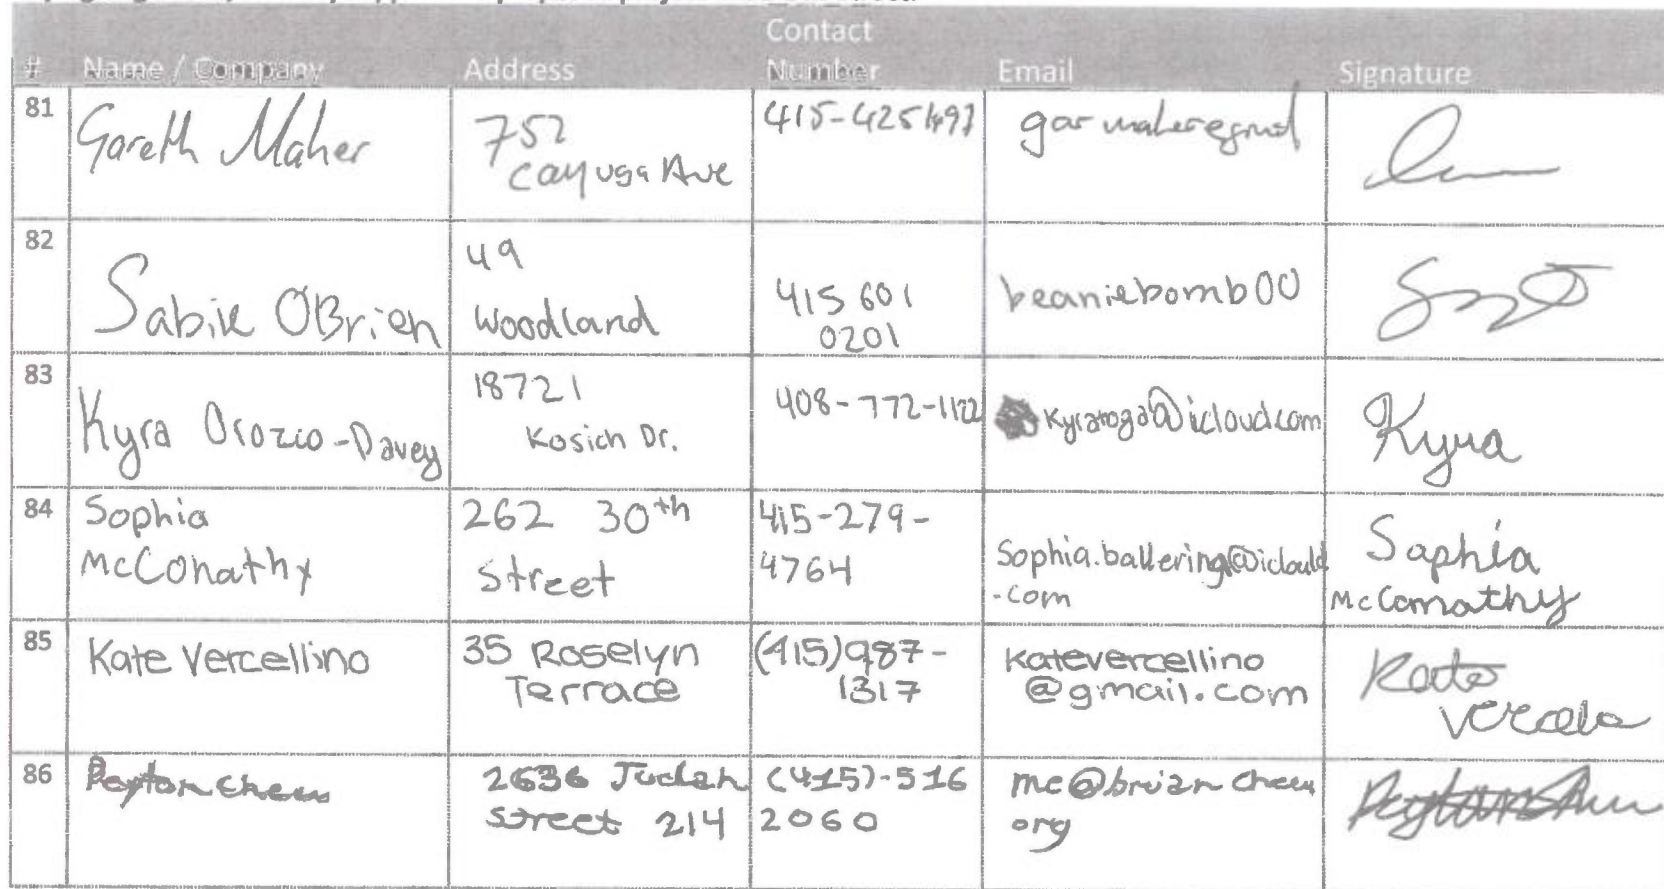 Contact
# Name / Company Address Number Email Signature
81 Gareth Maher 752 Cayuga Ave 415-425
82 O'Brien 49 Woodland 415 601 0201 beaniebomb00
83 Kyra Orozco-Davey 18721 Kosich Dr. 408-772-1122 @icloud.com Kyra
84 Sophia McConathy 262 30th Street 415-279-4764 Sophia.ballering@iclould.com Sophia McConathy
85 Kate Vercellino 35 Roselyn Terrace (415)987-1317 katevercellino@gmail.com Kate
86 Peyton Chew 2636 Judah Street 214 (415)-516 2060 me@brianchew org